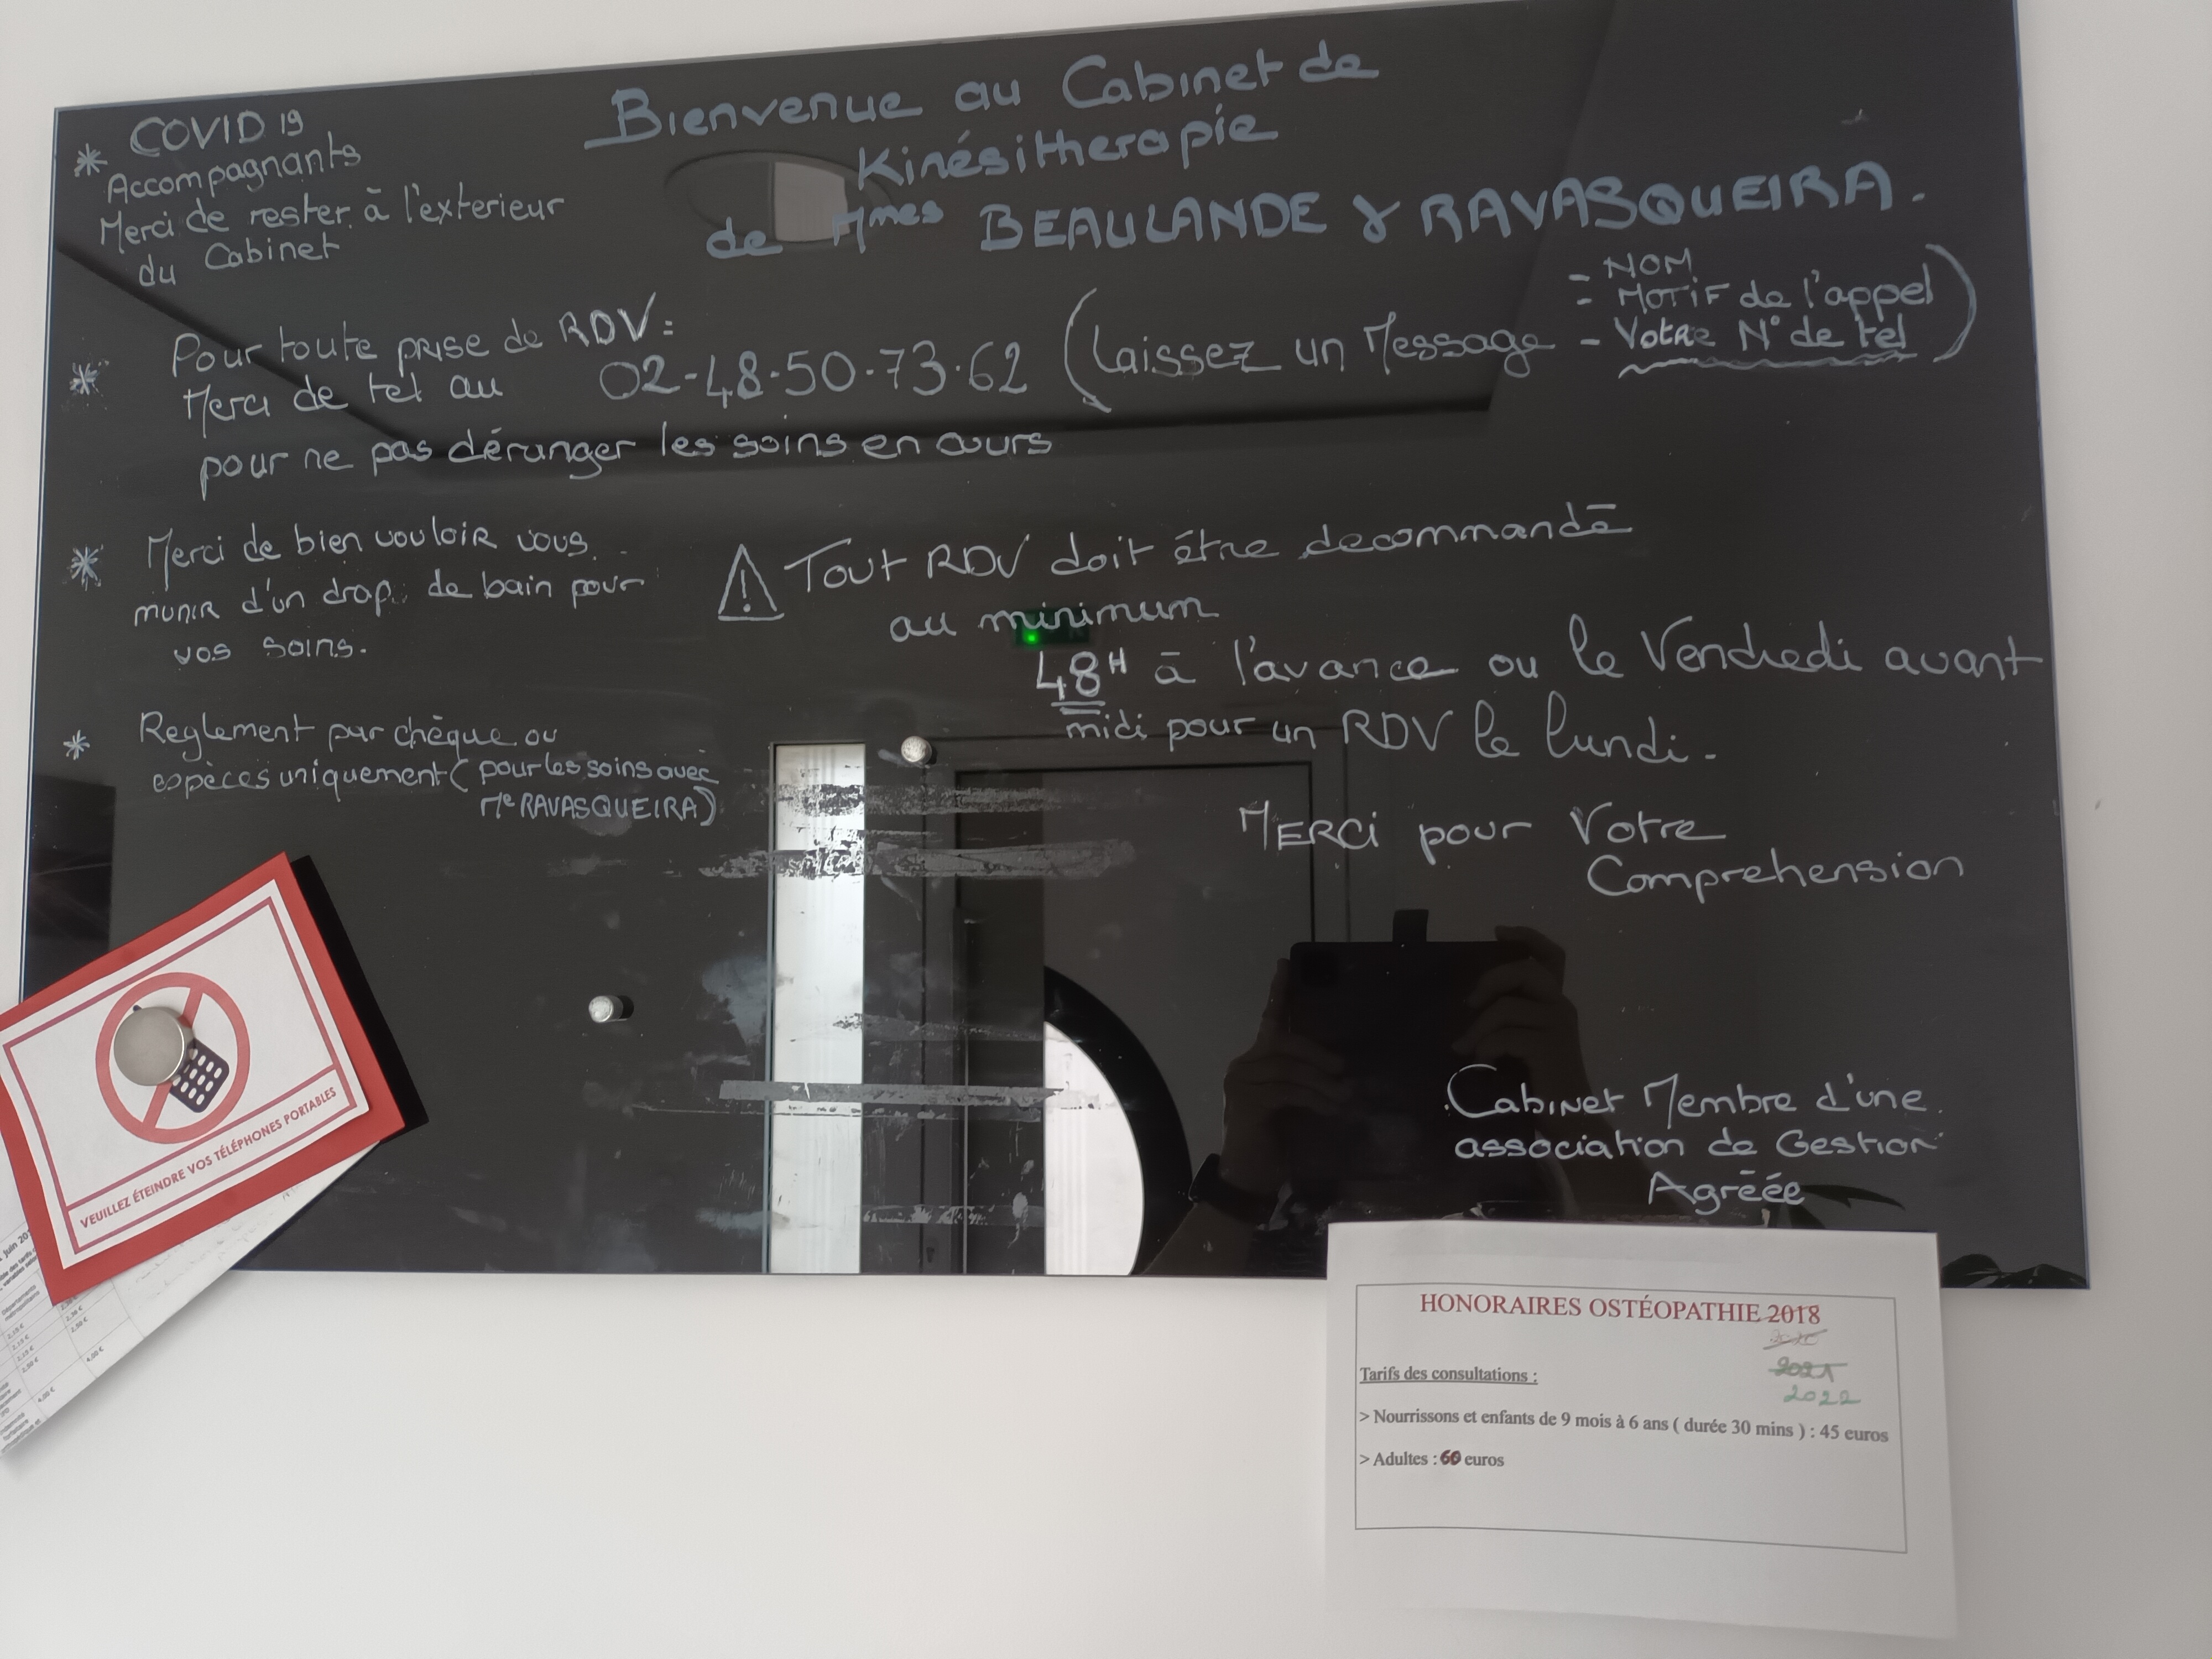 Bienvenue au Cabinet de
Kinésitherapie
de Mmes BEAULANDE & RAVASQUEIRA.
* COVID 19
Accompagnants
Merci de rester à l'exterieur
du Cabinet
* Pour toute prise de RDV :
Merci de tel au 02-48-50-73-62 (Laissez un Message
- NOM
- MOTIF de l'appel
- Votre N° de tel)
pour ne pas déranger les soins en cours
* Merci de bien vouloir vous
munir d'un drap de bain pour
vos soins.
⚠ Tout RDV doit être decommandé
au minimum
48H à l'avance ou le Vendredi avant
midi pour un RDV le lundi.
* Reglement par chèque ou
espèces uniquement (pour les soins avec
Me RAVASQUEIRA)
MERCi pour Votre
Comprehension
VEUILLEZ ÉTEINDRE VOS TÉLÉPHONES PORTABLES
Cabinet Membre d'une
association de Gestion
Agréée
HONORAIRES OSTÉOPATHIE 2018
2021
2022
Tarifs des consultations :
> Nourrissons et enfants de 9 mois à 6 ans ( durée 30 mins ) : 45 euros
> Adultes : 60 euros